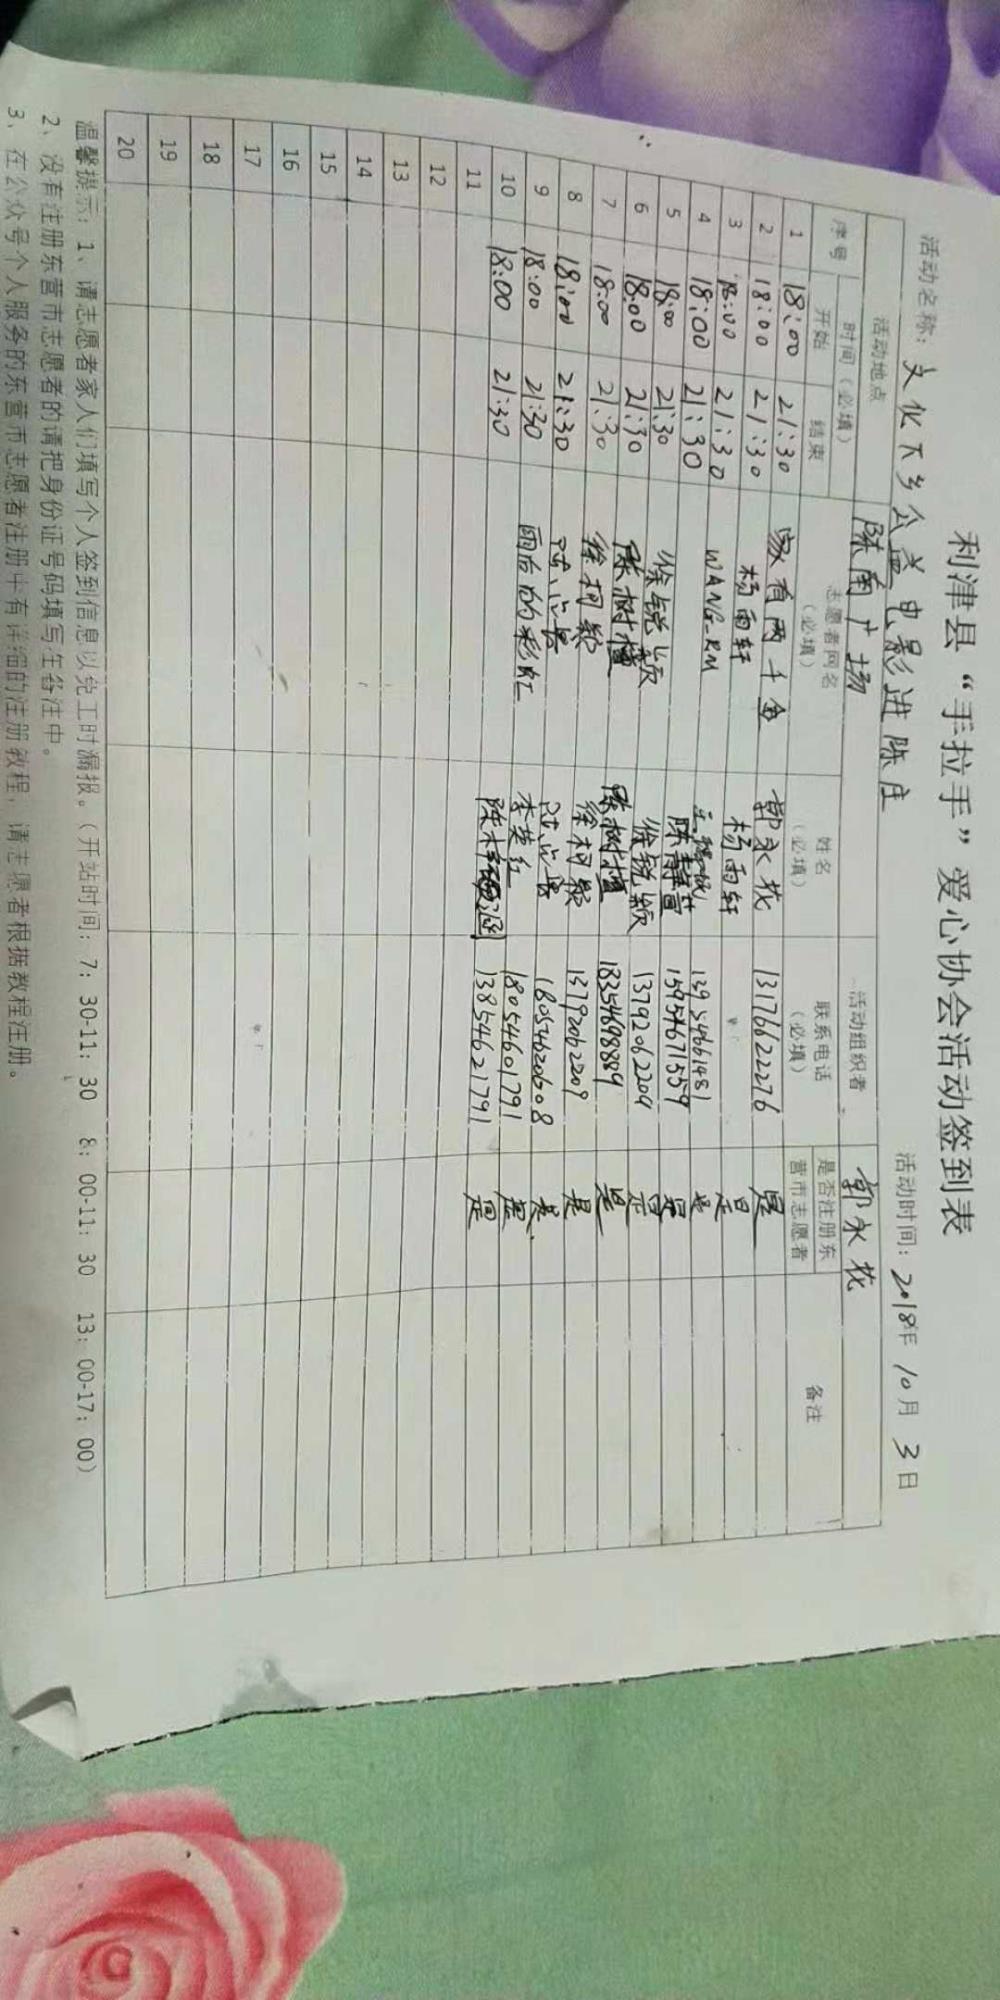 利津县“手拉手”爱心协会活动签到表
活动名称：文化下乡公益电影进陈庄 活动时间：2018年10月3日
活动地点 陈南广场 活动组织者 郭永花
序号 时间（必填） 志愿者网名（必填） 姓名（必填） 联系电话（必填） 是否注册东营市志愿者 备注
开始 结束
1 18:00 21:30 家有两千金 郭永花 13176622276 是
2 18:00 21:30 杨雨轩 杨雨轩 是
3 18:00 21:30 WANG-RM 13954661481 是
4 18:00 21:30 陈静 15954671559 是
5 18:00 21:30 徐锐颖 徐锐颖 13792062209 是
6 18:00 21:30 陈树檀 陈树檀 18354698889 是
7 18:00 21:30 徐柯颖 徐柯颖 13792062209 是
8 18:00 21:30 18054620608 是
9 18:00 21:30 雨后的彩虹 李英红 18054601791 是
10 18:00 21:30 13854621791 是
11
12
13
14
15
16
17
18
19
20
温馨提示：1、请志愿者家人们填写个人签到信息以免工时漏报。（开站时间：7：30-11：30 8：00-11：30 13：00-17：00）
2、没有注册东营市志愿者的请把身份证号码填写在备注中。
3、在公众号个人服务的东营市志愿者注册中有详细的注册教程，请志愿者根据教程注册。